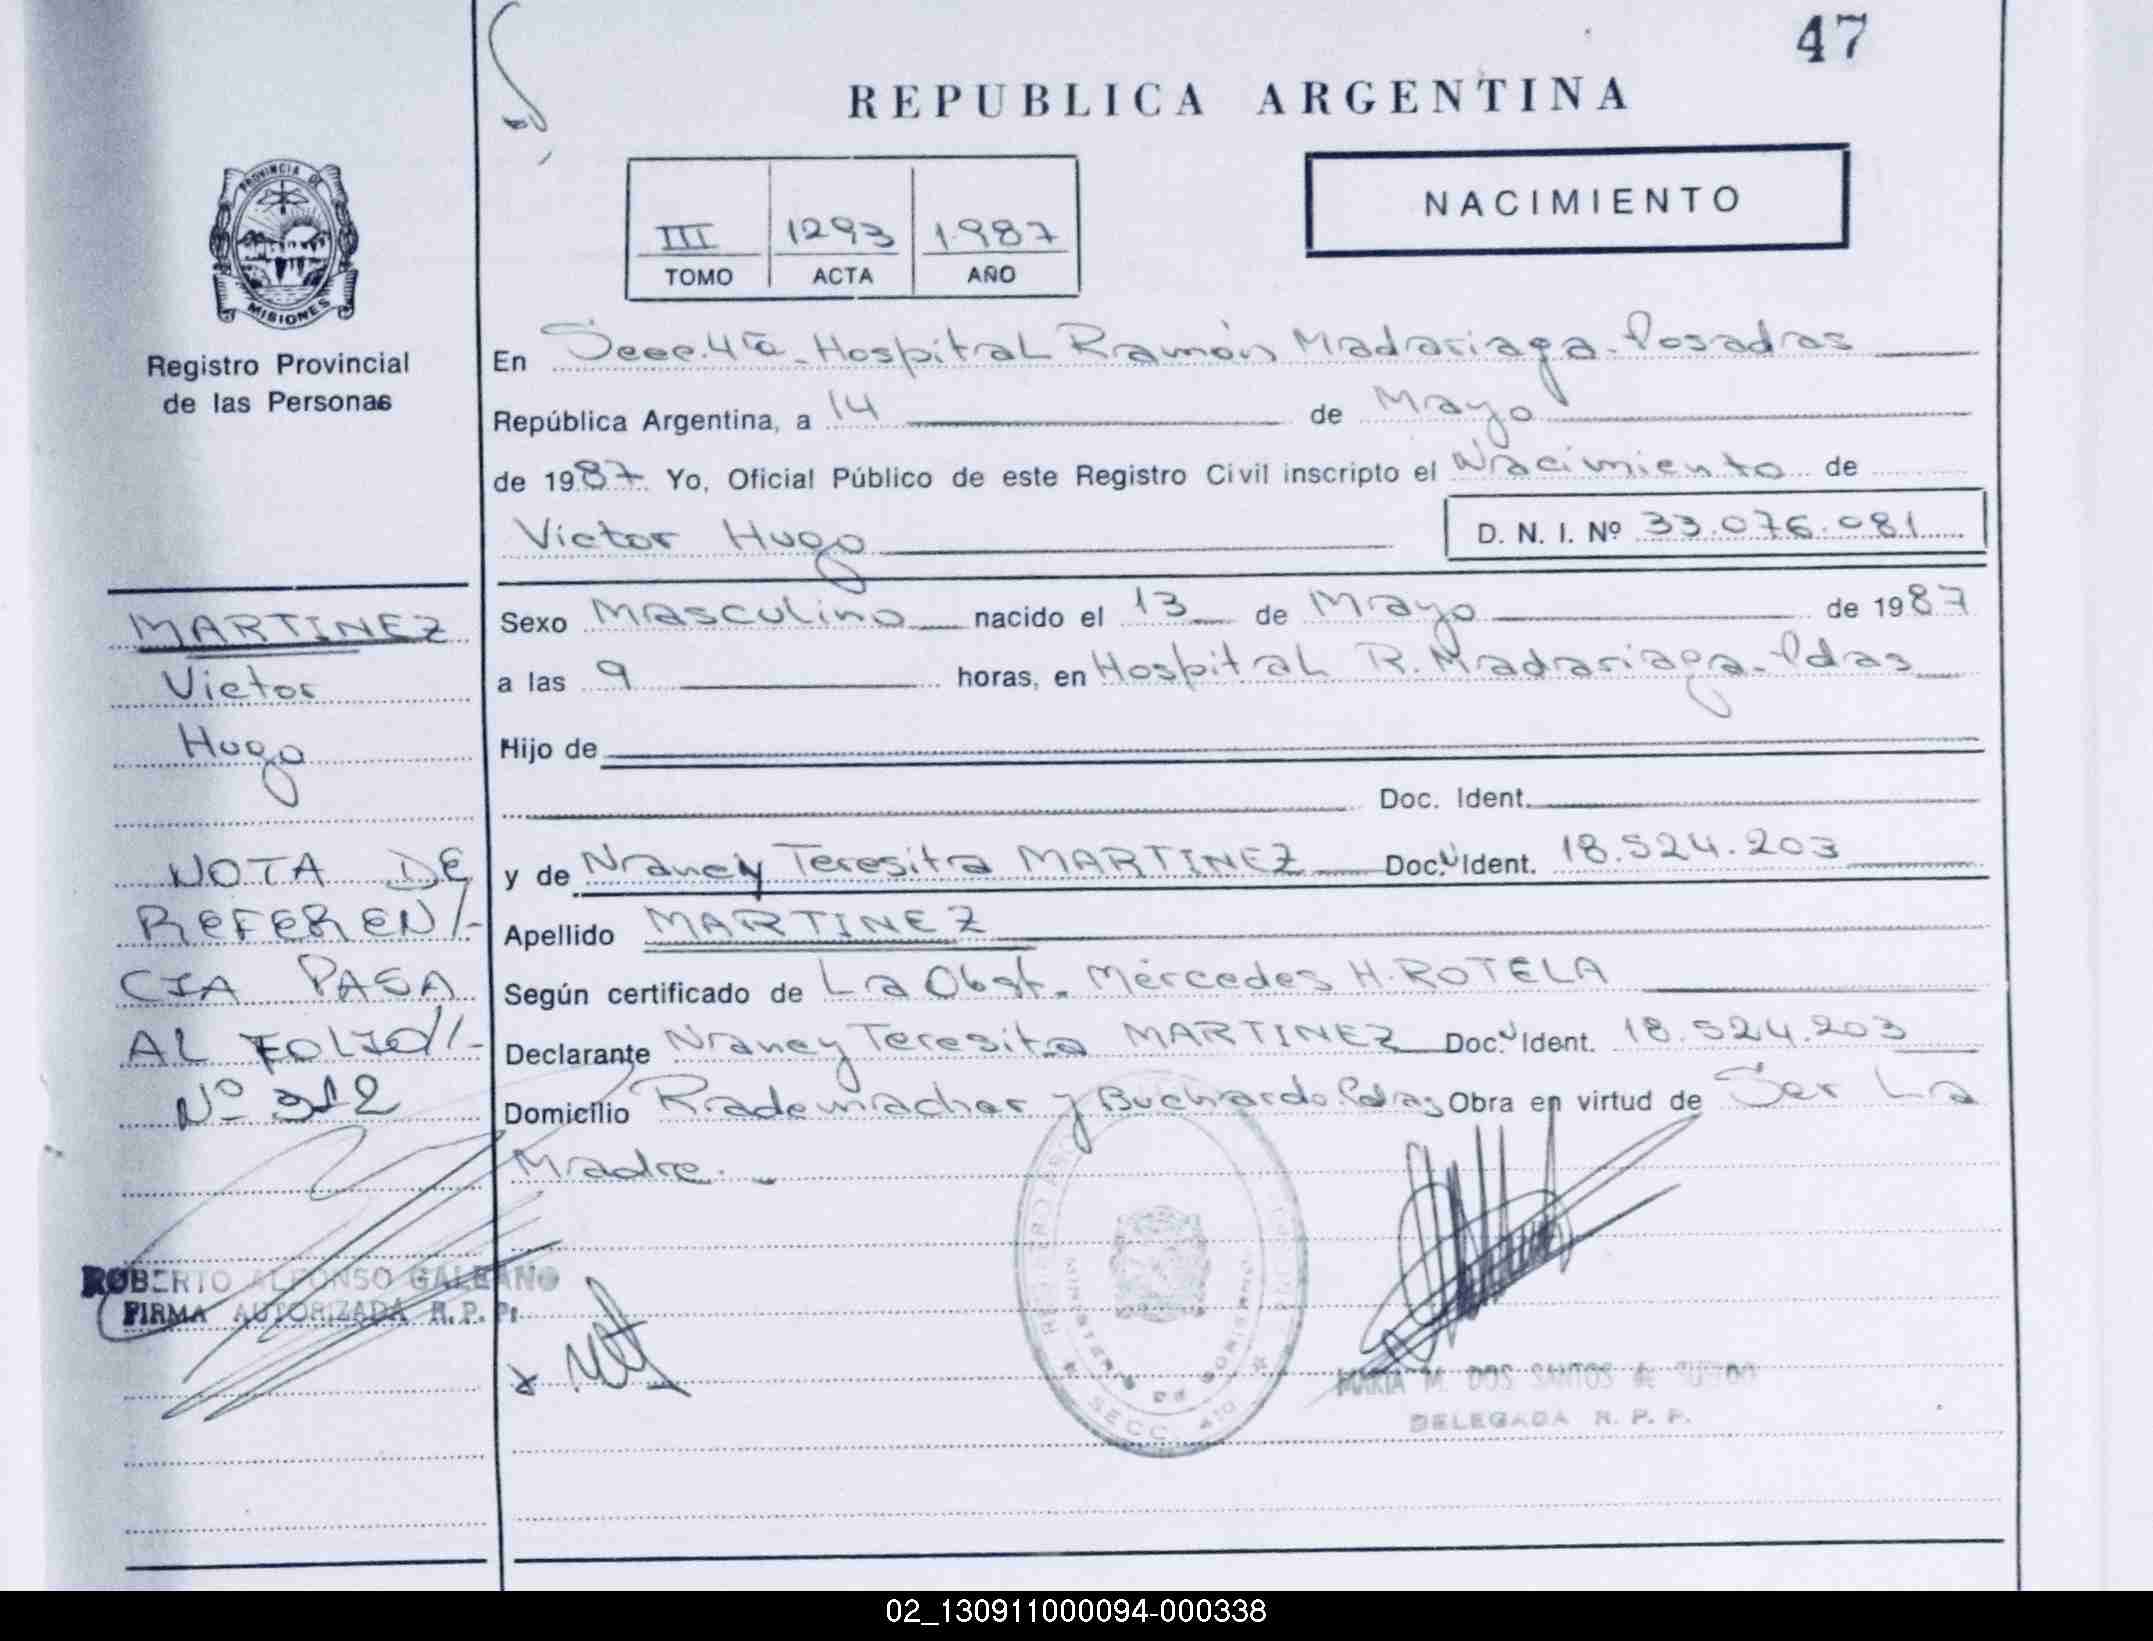 47
REPUBLICA ARGENTINA
NACIMIENTO
III 1293 1987
TOMO ACTA AÑO
PROVINCIA DE
MISIONES
Registro Provincial
de las Personas
En Secc. 4ta. Hospital Ramón Madariaga. Posadas
República Argentina, a 14 de Mayo
de 1987 Yo, Oficial Público de este Registro Civil inscripto el Nacimiento de
Victor Hugo D. N. I. Nº 33.076.081
Sexo Masculino nacido el 13 de Mayo de 1987
a las 9 horas, en Hospital R. Madariaga. Pdas
Hijo de
Doc. Ident.
y de Nancy Teresita MARTINEZ Doc. Ident. 18.524.203
Apellido MARTINEZ
Según certificado de La Obst. Mercedes H. ROTELA
Declarante Nancy Teresita MARTINEZ Doc. Ident. 18.524.203
Domicilio Rademacher y Buchardo. Pdas Obra en virtud de Ser La
Madre.
MARTINEZ
Victor
Hugo
NOTA DE
REFEREN/-
CIA PASA
AL FOLIO//-
Nº 312
ROBERTO ALFONSO GALEANO
FIRMA AUTORIZADA R. P. P.
MINISTERIO DE GOBIERNO
SECC. 4TO
MARIA M. DOS SANTOS de
DELEGADA R. P. P.
02_130911000094-000338